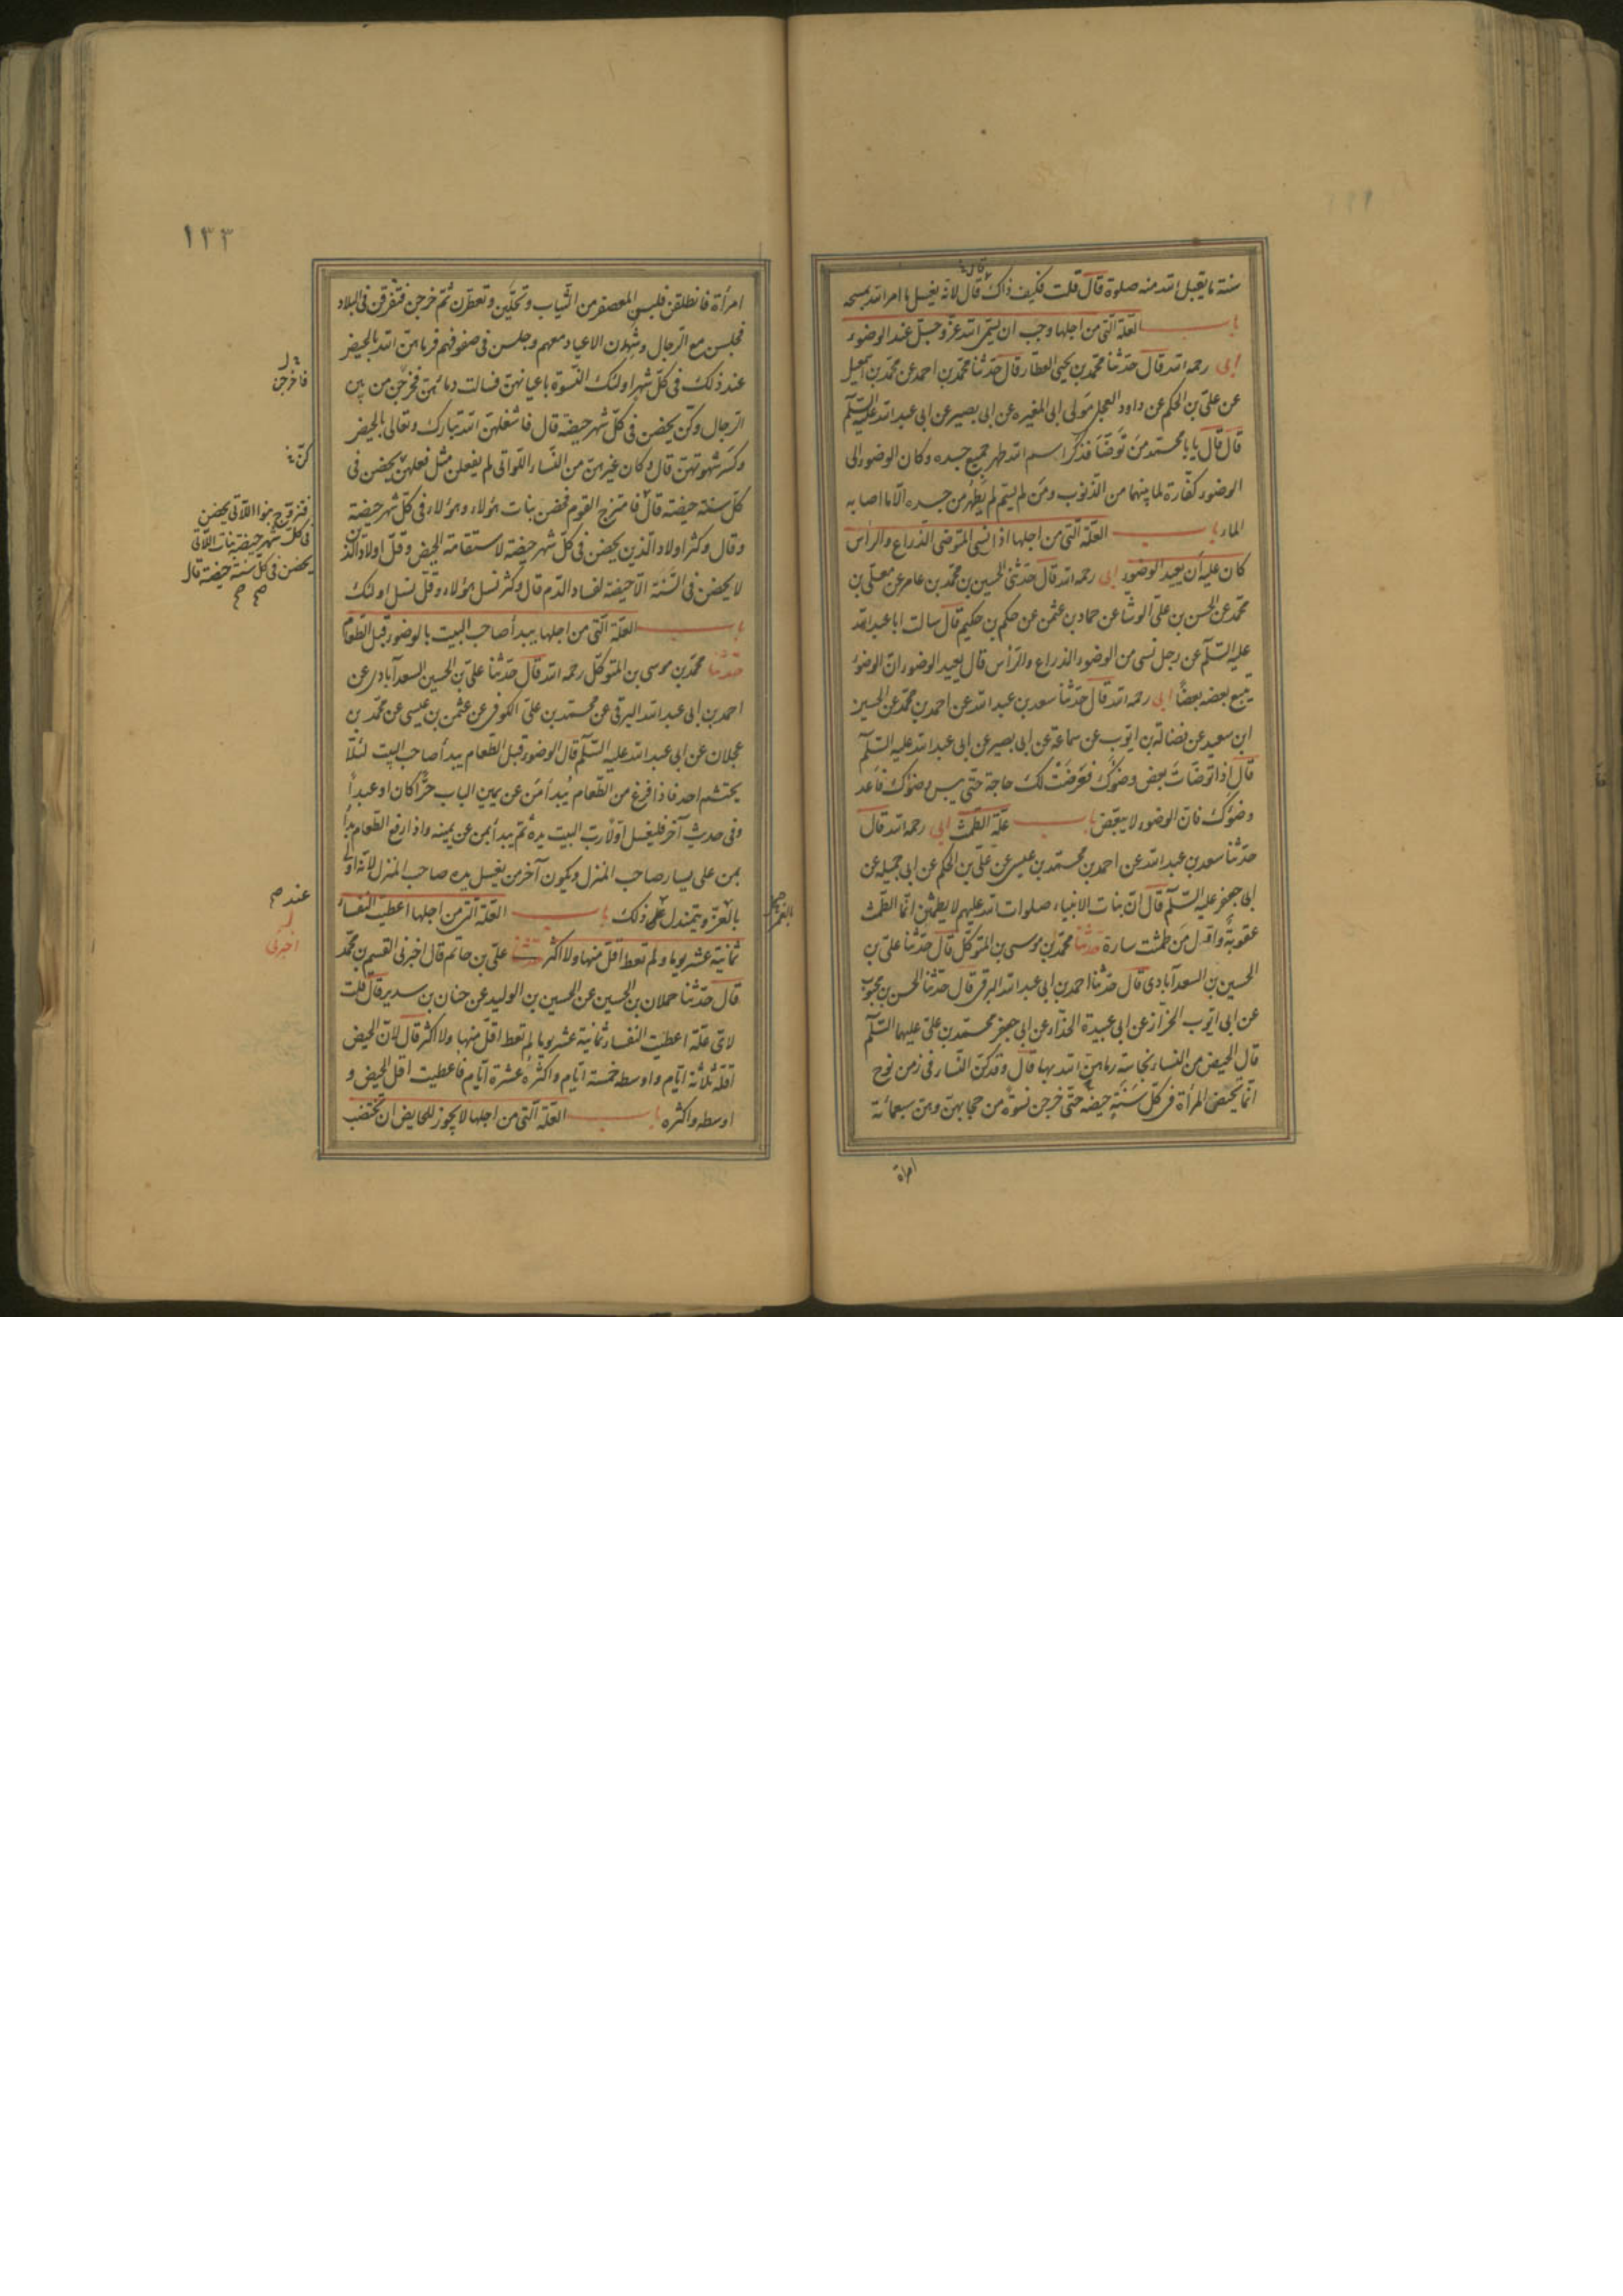 سنة ما يقبل الله منه صلوة قال قلت فكيف ذاك قال لانه يغسل ما امر الله بمسحه
باب العلة التى من اجلها وجب ان يسمى الله عز و جل عند الوضوء
ابى رحمه الله قال حدثنا محمد بن يحيى العطار قال حدثنا محمد بن احمد عن محمد بن اسمعيل
عن على بن الحكم عن داود العجلى مولى ابى المغيره عن ابى بصير عن ابى عبد الله عليه السلم
قال قال يا با محمد من توضأ فذكر اسم الله طهر جميع جسده وكان الوضوء الى
الوضوء كفارة لما بينهما من الذنوب ومن لم يسم لم يطهر من جسده الا ما اصابه
الماء باب العلة التى من اجلها اذا نسى المتوضى الذراع والراس
كان عليه ان يعيد الوضوء ابى رحمه الله قال حدثنى الحسين بن محمد بن عامر عن معلى بن
محمد عن الحسن بن على الوشا عن حماد بن عثمن عن حكم بن حكيم قال سالت ابا عبد الله
عليه السلم عن رجل نسى من الوضوء الذراع والراس قال يعيد الوضوء ان الوضوء
يتبع بعضه بعضا ابى رحمه الله قال حدثنا سعد بن عبد الله عن احمد بن محمد عن الحسين
ابن سعيد عن فضالة بن ايوب عن سماعة عن ابى بصير عن ابى عبد الله عليه السلم
قال اذا توضات بعض وضوئك فعرضت لك حاجة حتى يبس وضوئك فاعد
وضوئك فان الوضوء لا يبعض باب علة الطمث ابى رحمه الله قال
حدثنا سعد بن عبد الله عن احمد بن محمد بن عيسى عن على بن الحكم عن ابى جميله عن
ابى جعفر عليه السلم قال ان بنات الانبياء صلوات الله عليهم لا يطمثن انما الطمث
عقوبة واول من طمثت سارة حدثنا محمد بن موسى بن المتوكل قال حدثنا على بن
الحسين بن السعدآبادى قال حدثنا احمد بن ابى عبد الله البرقى قال حدثنا الحسن بن محبوب
عن ابى ايوب الخزاز عن ابى عبيدة الحذاء عن ابى جعفر محمد بن على عليهما السلم
قال الحيض من النساء نجاسة رماهن الله بها قال وقد كن النساء فى زمن نوح
انما تحيض المرأة فى كل سنة حيضة حتى خرجن نسوة من حجابهن وهن سبعمائة
امراة
١٣٣
امرأة فانطلقن فلبسن المعصفر من الثياب و تحلين و تعطرن ثم خرجن فتفرقن فى البلاد
فجلسن مع الرجال وشهدن الاعياد معهم وجلسن فى صفوفهم فرماهن الله بالحيض
عند ذلك فى كل شهر اولئك النسوة باعيانهن فسالت دمائهن فخرجن من بين
الرجال وكن يحضن فى كل شهر حيضة قال فاشغلهن الله تبارك وتعالى بالحيض
وكسر شهوتهن قال وكان غيرهن من النساء اللواتى لم يفعلن مثل فعلهن يحضن فى
كل سنة حيضة قال فامتزج القوم فحضن بنات هؤلاء وهؤلاء فى كل شهر حيضة
وقال وكثر اولاد الذين يحضن فى كل شهر حيضة لاستقامة الحيض وقل اولاد الذين
لا يحضن فى السنة الا حيضة لفساد الدم قال وكثر نسل هؤلاء وقل نسل اولئك
باب العلة التى من اجلها يبدأ صاحب البيت بالوضوء قبل الطعام
حدثنا محمد بن موسى بن المتوكل رحمه الله قال حدثنا على بن الحسين السعدآبادى عن
احمد بن ابى عبد الله البرقى عن محمد بن على الكوفى عن عثمن بن عيسى عن محمد بن
عجلان عن ابى عبد الله عليه السلم قال الوضوء قبل الطعام يبدأ صاحب البيت لئلا
يحتشم احد فاذا فرغ من الطعام يبدأ من عن يمين الباب حرا كان او عبدا
وفى حديث آخر فليغسل اولا رب البيت يده ثم يبدأ بمن عن يمينه واذا رفع الطعام بدأ
بمن على يسار صاحب المنزل ويكون آخر من يغسل يده صاحب المنزل لانه اولى
بالغمر ويتمندل على ذلك باب العلة التى من اجلها اعطيت النفساء
ثمانية عشر يوما ولم تعط اقل منها ولا اكثر حدثنا على بن حاتم قال اخبرنى القسم بن محمد
قال حدثنا حملان بن الحسين عن الحسين بن الوليد عن حنان بن سدير قال قلت
لاى علة اعطيت النفساء ثمانية عشر يوما لم تعط اقل منها ولا اكثر قال لان الحيض
اقله ثلاثة ايام واوسطه خمسة ايام واكثره عشرة ايام فاعطيت اقل الحيض و
اوسطه واكثره باب العلة التى من اجلها لا يجوز للحايض ان تختضب
فاخرجن
كن
فتزوج بنوا اللاتى يحضن
فى كل شهر حيضة بنات اللاتى
يحضن فى كل سنة حيضة قال
صح صح
عند
اخبرنى